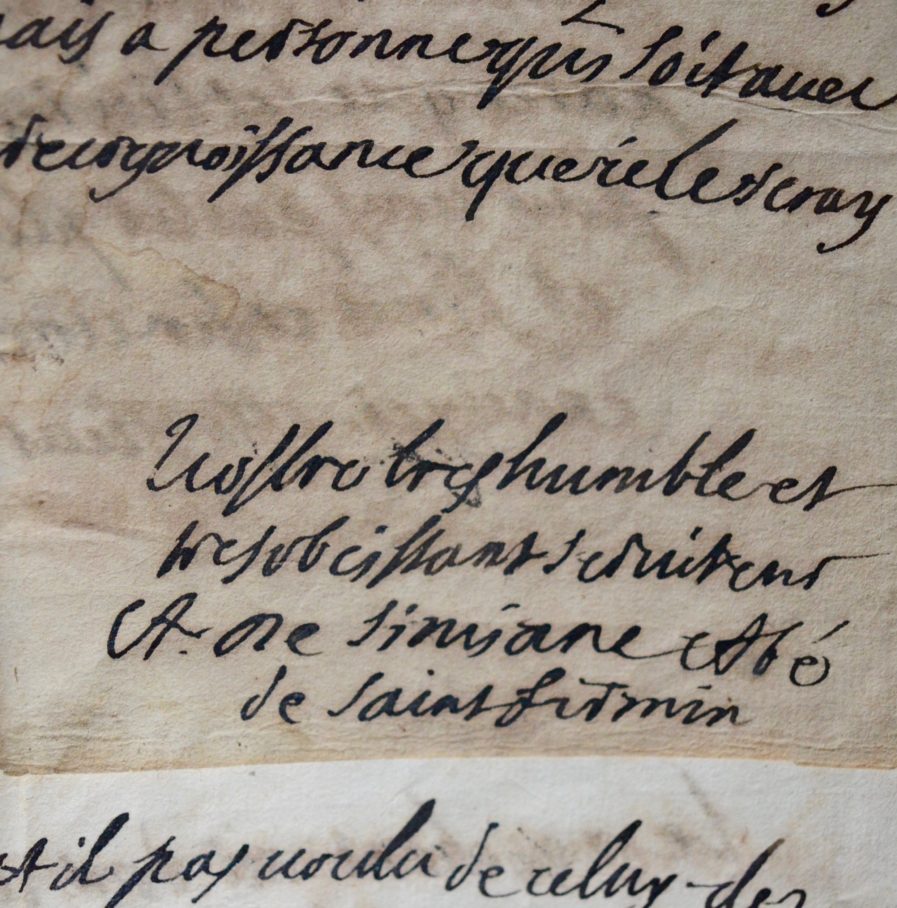 mais a personne qui soit avec
de cognoissance que ie le seray
Vostre tres humble et
tres obeissant serviteur
A. de Simiane Abé
de saint firmin
il pas voulu de celuy des